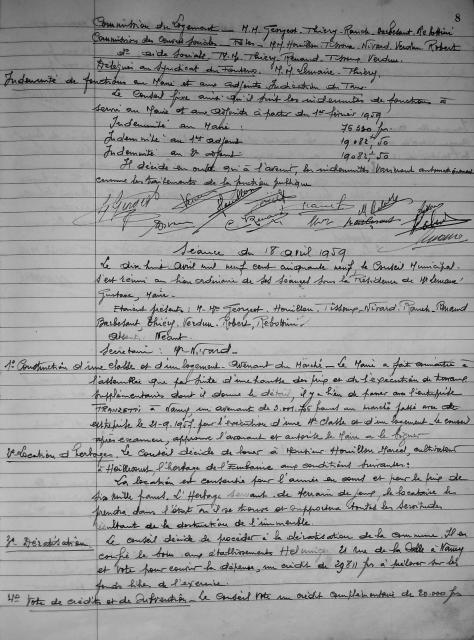 8
Commission du Logement - M.M. Georget, Thiéry, Ranck, Barbesant, Rebottini
Commission des Cours Sociales, Fêtes - M.M. Houillon, Tissoux, Nivard, Verdun, Robert
et aide Sociale, M.M. Thiéry, Renaud, Tissoux, Verdun.
Délégués au Syndicat du : M.M. Lemaire, Thiéry.
Indemnité de fonctions au Maire et aux adjoints. Indication du Taux
Le Conseil fixe ainsi qu'il suit les indemnités de fonction à
servir au Maire et aux adjoints à partir du 1er février 1959
Indemnité au Maire : 76.330 frs
Indemnité au 1er adjoint 19.082,50
Indemnité au 2e adjoint 19.082,50
Il décide en outre qu'à l'avenir, les indemnités varieront automatiquement
comme les traitements de la fonction publique
Séance du 18 avril 1959
Le dix huit avril mil neuf cent cinquante neuf, le Conseil Municipal
s'est réuni au lieu ordinaire de ses séances sous la Présidence de Mr Lemaire
Gustave, Maire.
Etaient présents : M. Mrs Georget, Houillon, Tissoux, Nivard, Ranck, Renaud
Barbesant, Thiéry, Verdun, Robert, Rebottini
Absent : Néant
Secrétaire : Mr Nivard -
1° Construction d'une classe et d'un logement. avenant du Marché - Le Maire a fait connaître à
l'assemblée que par suite d'une hausse des prix et de l'exécution de travaux
supplémentaires dont il donne le détail, il y a lieu de passer avec l'entreprise
TRANZETTI à Nancy, un avenant de 2.001.705 francs au marché passé avec cette
entreprise le 21-9-1957 pour l'exécution d'une classe et d'un logement. Le conseil
après examen, approuve l'avenant et autorise le Maire à le signer
2° Location d'herbages. Le Conseil décide de louer à Monsieur Houillon Marcel, cultivateur
à Heillecourt, l'herbage de l'Embanie aux conditions suivantes :
La location est consentie pour l'année en cours et pour le prix de
dix mille francs. L'Herbage servant de terrain de jeux, le locataire le
prendra dans l'état où il se trouve et supportera toutes les servitudes
résultant de la destination de l'immeuble.
3° Dératisation. Le conseil décide de procéder à la dératisation de la commune. Il en
confie le soin aux établissements 21 rue de la à Nancy
et vote pour couvrir la dépense, un crédit de 29811 frs à prélever sur les
fonds libres de l'exercice.
4° Vote de crédits et de Subvention - Le Conseil vote un crédit complémentaire de 20.000 frs